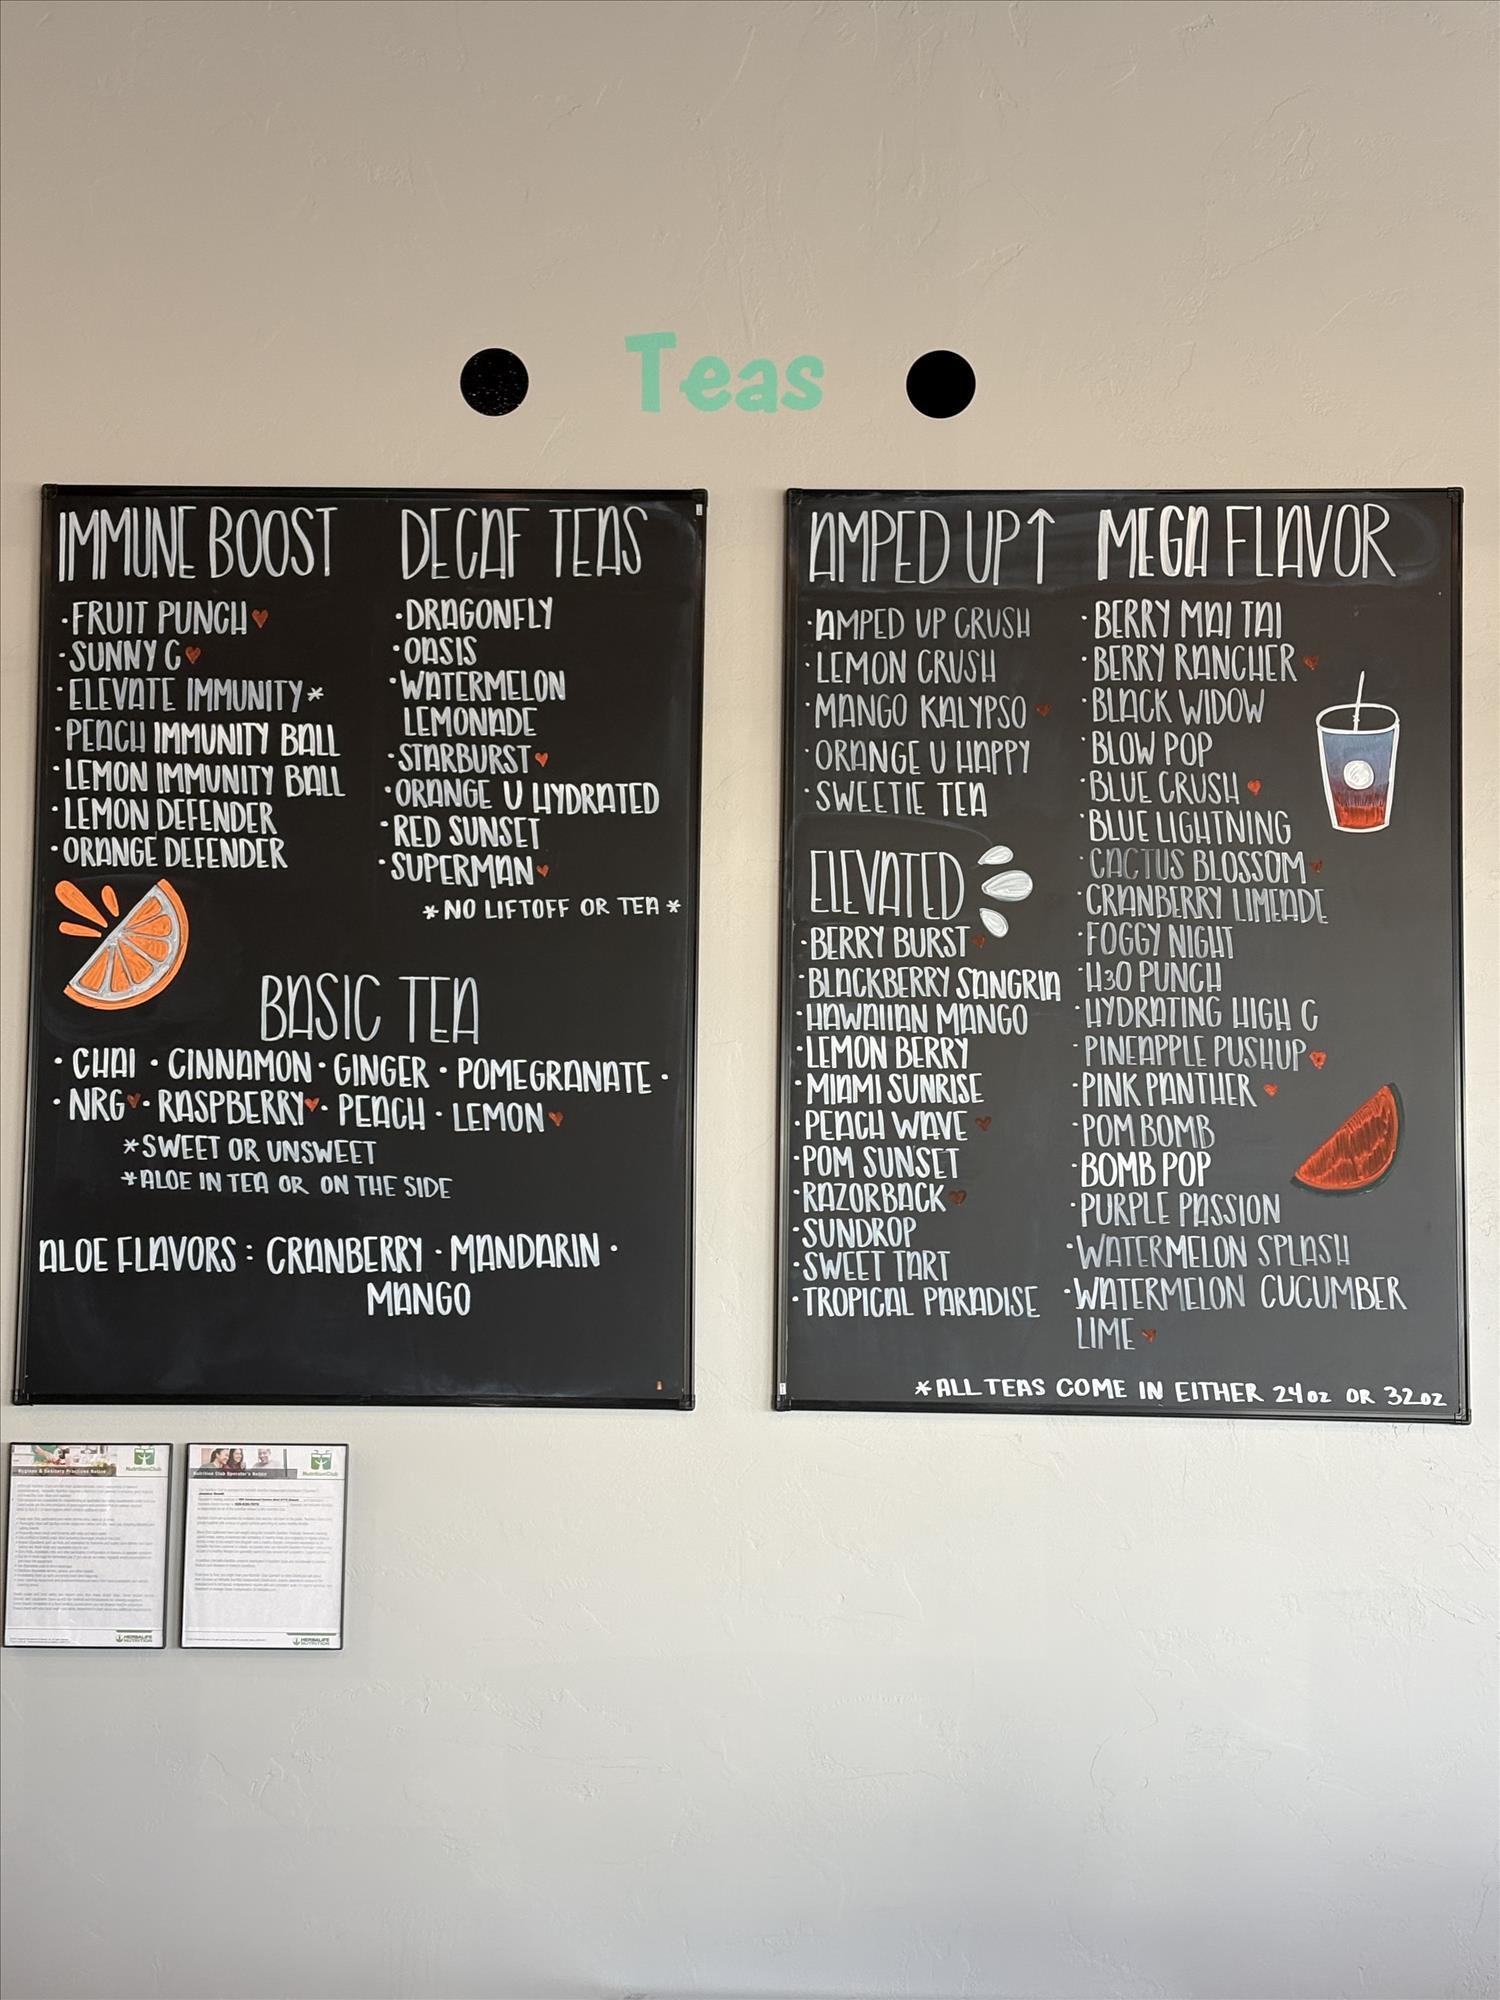 Teas
IMMUNE BOOST
• FRUIT PUNCH
• SUNNY C
• ELEVATE IMMUNITY*
• PEACH IMMUNITY BALL
• LEMON IMMUNITY BALL
• LEMON DEFENDER
• ORANGE DEFENDER
DECAF TEAS
• DRAGONFLY
• OASIS
• WATERMELON
LEMONADE
• STARBURST
• ORANGE U HYDRATED
• RED SUNSET
• SUPERMAN
*NO LIFTOFF OR TEA*
BASIC TEA
• CHAI • CINNAMON • GINGER • POMEGRANATE •
• NRG • RASPBERRY • PEACH • LEMON
*SWEET OR UNSWEET
*ALOE IN TEA OR ON THE SIDE
ALOE FLAVORS: CRANBERRY • MANDARIN •
MANGO
AMPED UP↑
• AMPED UP CRUSH
• LEMON CRUSH
• MANGO KALYPSO
• ORANGE U HAPPY
• SWEETIE TEA
ELEVATED
• BERRY BURST
• BLACKBERRY SANGRIA
• HAWAIIAN MANGO
• LEMON BERRY
• MIAMI SUNRISE
• PEACH WAVE
• POM SUNSET
• RAZORBACK
• SUNDROP
• SWEET TART
• TROPICAL PARADISE
MEGA FLAVOR
• BERRY MAI TAI
• BERRY RANCHER
• BLACK WIDOW
• BLOW POP
• BLUE CRUSH
• BLUE LIGHTNING
• CACTUS BLOSSOM
• CRANBERRY LIMEADE
• FOGGY NIGHT
• H3O PUNCH
• HYDRATING HIGH C
• PINEAPPLE PUSHUP
• PINK PANTHER
• POM BOMB
• BOMB POP
• PURPLE PASSION
• WATERMELON SPLASH
• WATERMELON CUCUMBER
LIME
*ALL TEAS COME IN EITHER 24oz OR 32oz
NutritionClub
Hygiene & Sanitary Practices Notice
HERBALIFE
NUTRITION
NutritionClub
Nutrition Club Operator's Notice
HERBALIFE
NUTRITION